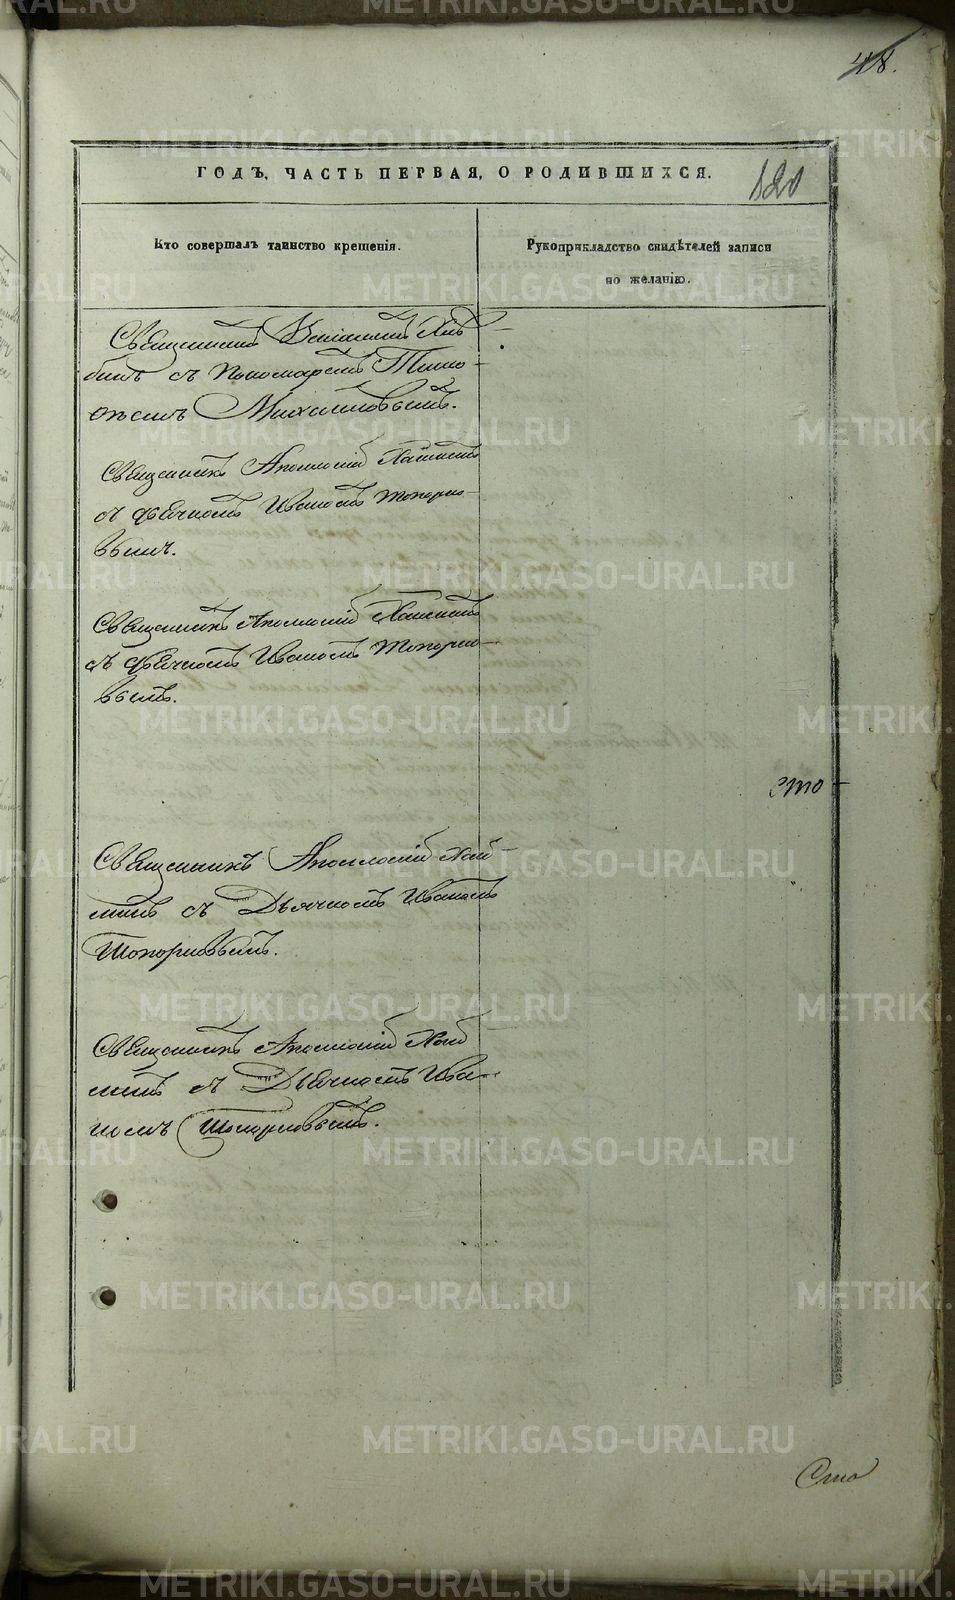 48.
ГОДЪ, ЧАСТЬ ПЕРВАЯ, О РОДИВШИХСЯ.
120
Кто совершалъ таинство крещенія.
Рукоприкладство свидѣтелей записи
по желанію.
Священникъ Василій
съ Пономаремъ Тимо-
ѳеемъ Михайловымъ.
Священникъ Аполлоній
съ дьячкомъ Иваномъ Топорко-
вымъ.
Священникъ Аполлоній
съ дьячкомъ Иваномъ Топорко-
вымъ.
сто
Священникъ Аполлоній
съ Дьячкомъ Иваномъ
Топорковымъ.
Священникъ Аполлоній
съ Дьячкомъ Ива-
номъ Топорковымъ.
Сто
METRIKI.GASO-URAL.RU